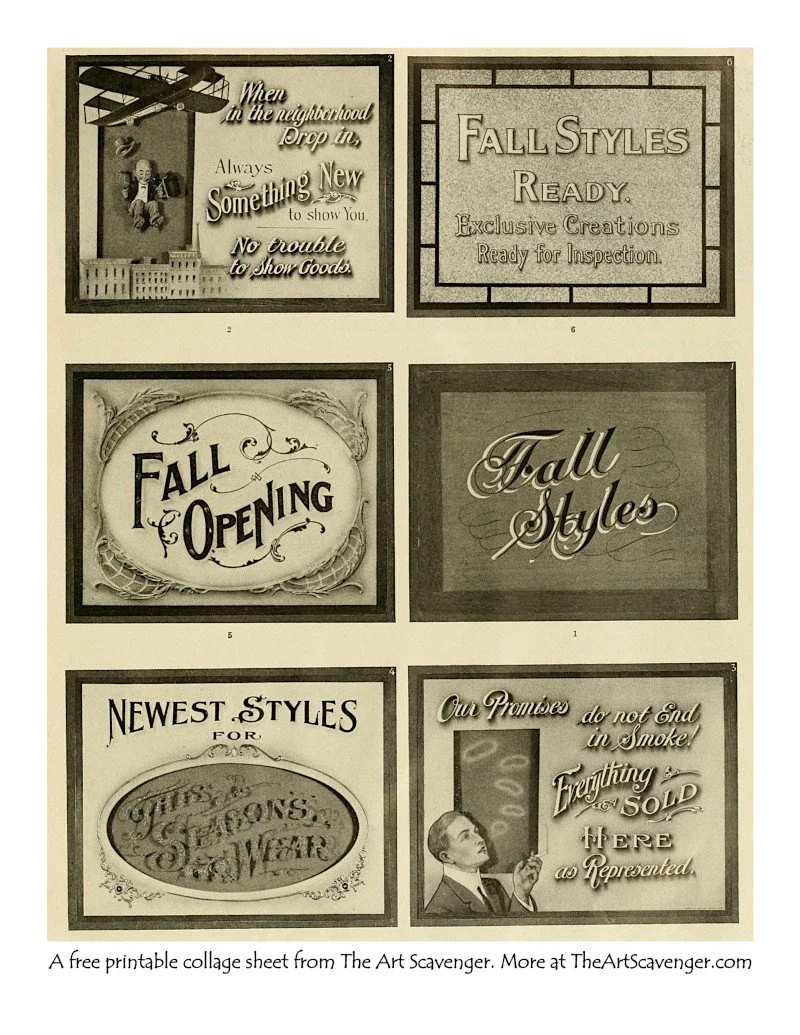 2
When
in the neighborhood
Drop in,
Always
Something New
to show You,
No trouble
to Show Goods.
2
6
FALL STYLES
READY.
Exclusive Creations
Ready for Inspection.
6
5
FALL
OPENING
5
1
Fall
Styles
1
4
NEWEST STYLES
FOR
THIS
SEASONS,
WEAR
3
Our Promises
do not End
in Smoke!
Everything
SOLD
HERE
as Represented.
A free printable collage sheet from The Art Scavenger. More at TheArtScavenger.com